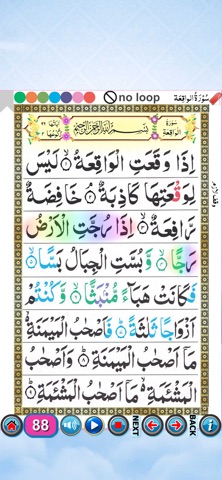 no loop سُوْرَةُ الْوَاقِعَة
سُوْرَةُ الْوَاقِعَة بِسْمِ اللّٰهِ الرَّحْمٰنِ الرَّحِيْمِ
اِذَا وَقَعَتِ الْوَاقِعَةُ ۙ لَيْسَ
لِوَقْعَتِهَا كَاذِبَةٌ ۘ خَافِضَةٌ
رَّافِعَةٌ ۙ اِذَا رُجَّتِ الْاَرْضُ
رَجًّا ۙ وَّبُسَّتِ الْجِبَالُ بَسًّا ۙ
فَكَانَتْ هَبَآءً مُّنْۢبَثًّا ۙ وَّكُنْتُمْ
اَزْوَاجًا ثَلٰثَةً ؕ فَاَصْحٰبُ الْمَيْمَنَةِ ۙ
مَاۤ اَصْحٰبُ الْمَيْمَنَةِ ؕ وَاَصْحٰبُ
الْمَشْئَمَةِ ۙ مَاۤ اَصْحٰبُ الْمَشْئَمَةِ ؕ
88 NEXT BACK